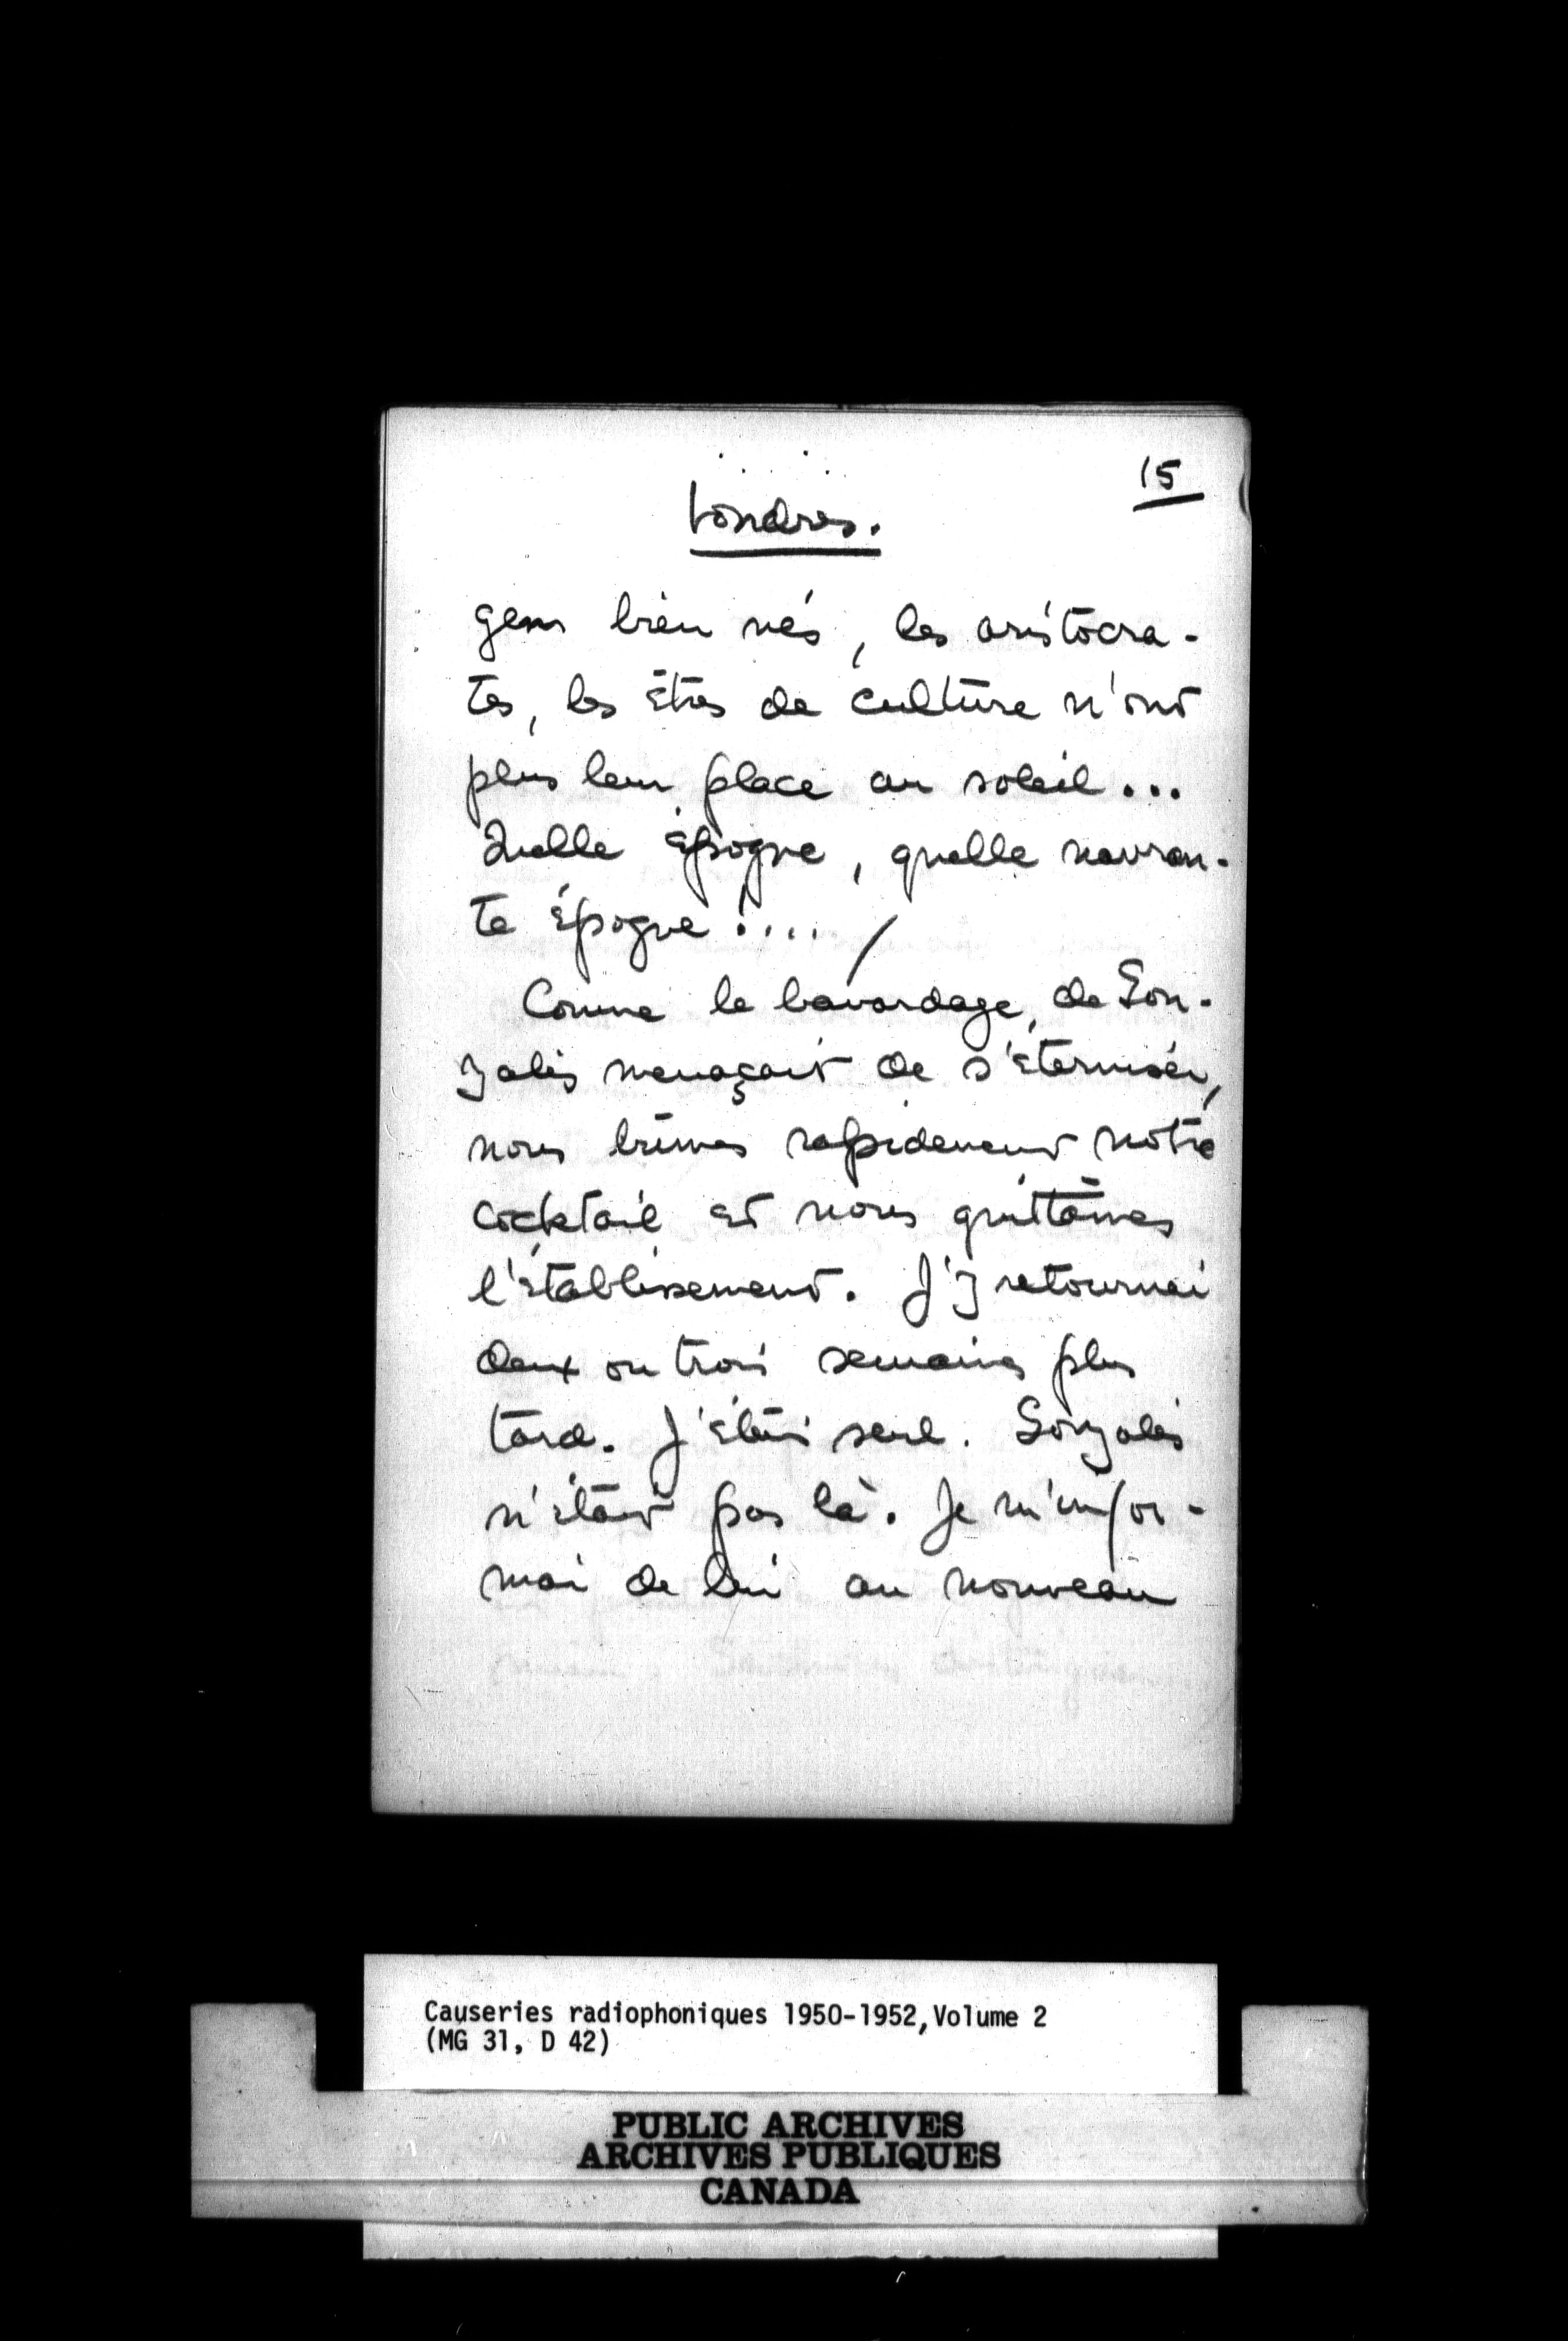 15
Londres.
gens bien nés, les aristocra-
tes, les êtres de culture n'ont
plus leur place au soleil...
Quelle époque, quelle navran-
te époque !... /
Comme le bavardage, de Gon-
zalès menaçait de s'éterniser,
nous bûmes rapidement notre
cocktail et nous quittâmes
l'établissement. J'y retournai
deux ou trois semaines plus
tard. J'étais seul. Gonzalès
n'était pas là. Je m'infor-
mai de lui au nouveau
Causeries radiophoniques 1950-1952, Volume 2
(MG 31, D 42)
PUBLIC ARCHIVES
ARCHIVES PUBLIQUES
CANADA